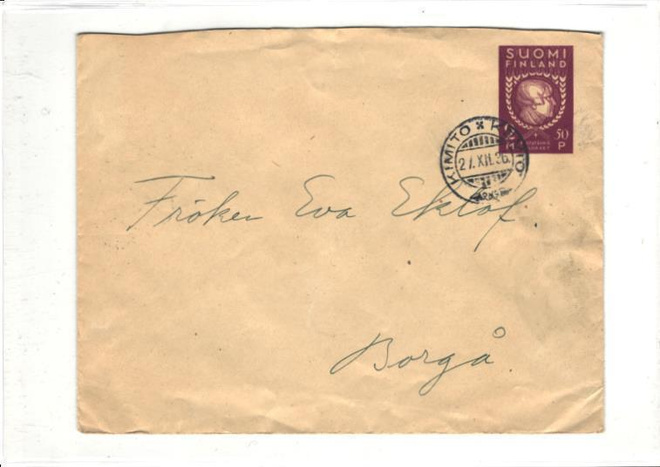 SUOMI
FINLAND
50
M P
KIMITO KIMITO
27.XII.36.
Fröken Eva Eklöf.
Borgå.